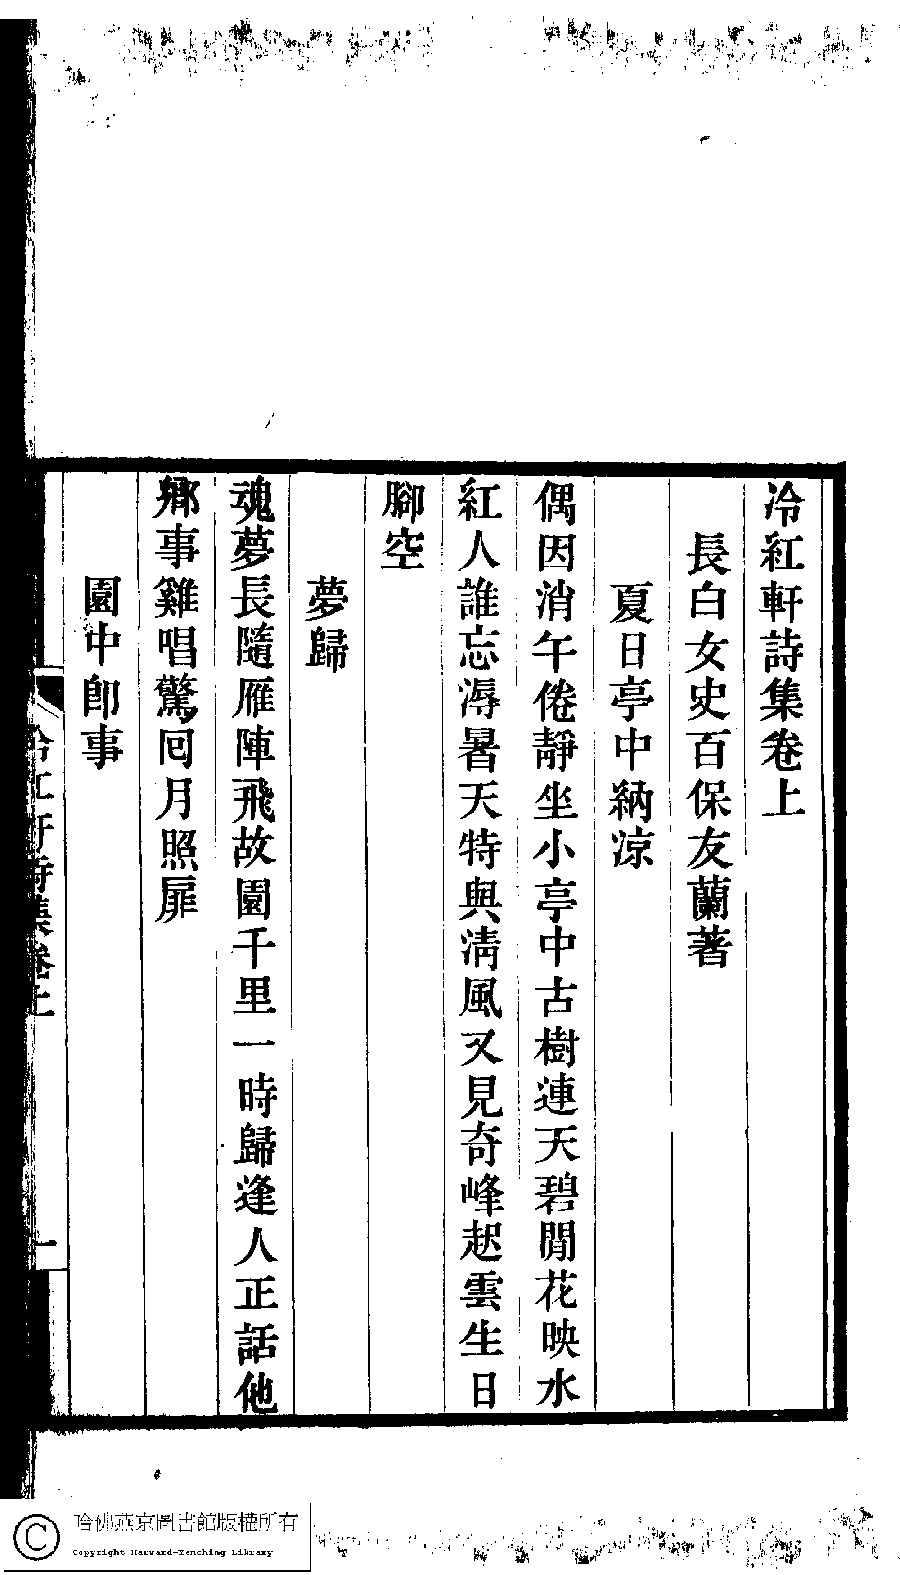 冷紅軒詩集卷上
長白女史百保友蘭著
夏日亭中納涼
偶因消午倦靜坐小亭中古樹連天碧閒花映水
紅人誰忘溽暑天特與淸風又見奇峰起雲生日
腳空
夢歸
魂夢長隨雁陣飛故園千里一時歸逢人正話他
鄉事雞唱驚囘月照扉
園中卽事
冷紅軒詩集卷上
一
哈佛燕京圖書館版權所有
Copyright Harvard-Yenching Library